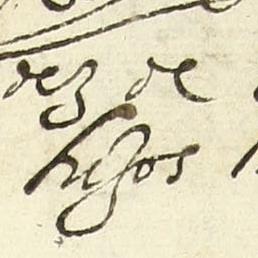 dez de
hijos